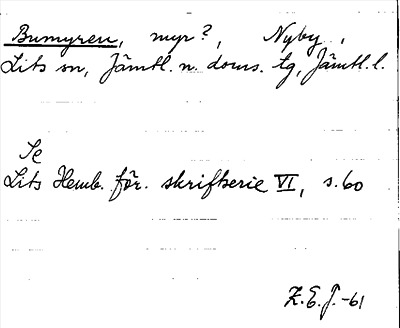 Bumyren, myr?, Nyby,
Lits sn, Jämtl. n. doms. tg, Jämtl. l.
Se
Lits Hemb. för. skriftserie VI, s. 60
Z.E.J.-61